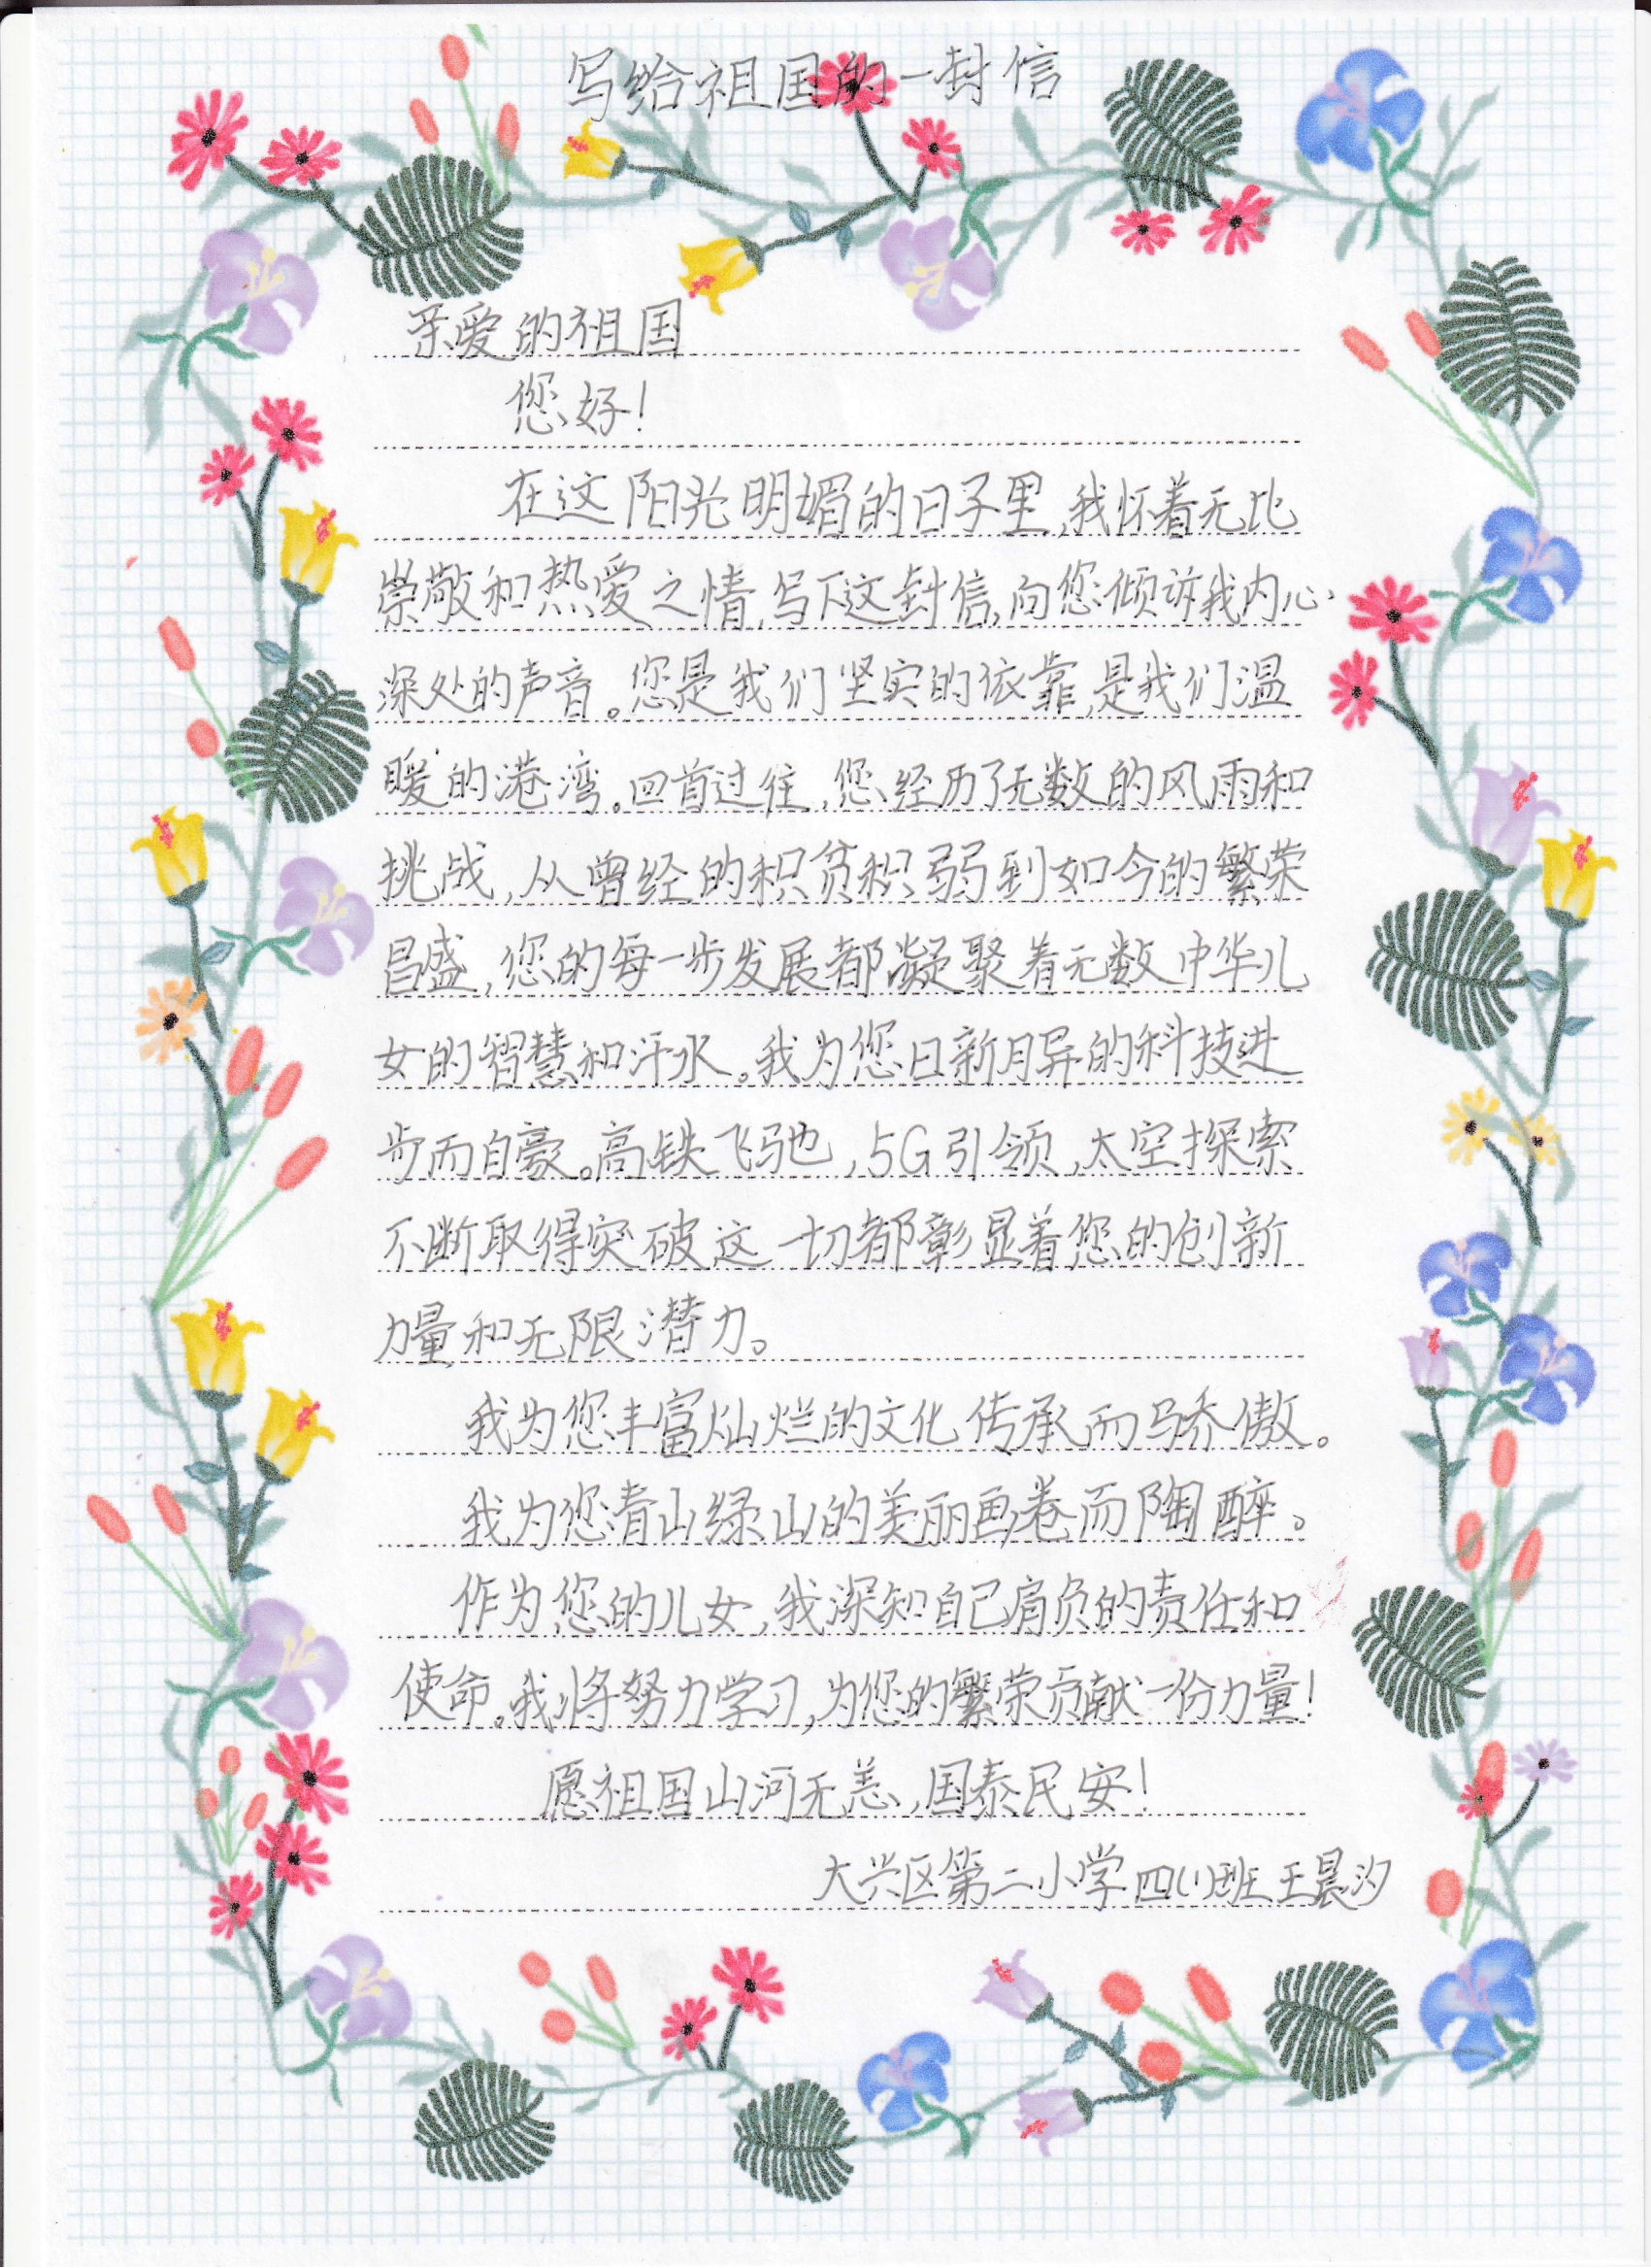 写给祖国的一封信
亲爱的祖国
您好！
在这阳光明媚的日子里,我怀着无比
崇敬和热爱之情,写下这封信,向您倾诉我内心
深处的声音。您是我们坚实的依靠,是我们温
暖的港湾。回首过往,您经历了无数的风雨和
挑战,从曾经的积贫积弱到如今的繁荣
昌盛,您的每一步发展都凝聚着无数中华儿
女的智慧和汗水。我为您日新月异的科技进
步而自豪。高铁飞驰,5G引领,太空探索
不断取得突破这一切都彰显着您的创新
力量和无限潜力。
我为您丰富灿烂的文化传承而骄傲。
我为您青山绿山的美丽画卷而陶醉。
作为您的儿女,我深知自己肩负的责任和
使命。我将努力学习,为您的繁荣贡献一份力量！
愿祖国山河无恙,国泰民安！
大兴区第二小学四(1)班王晨汐